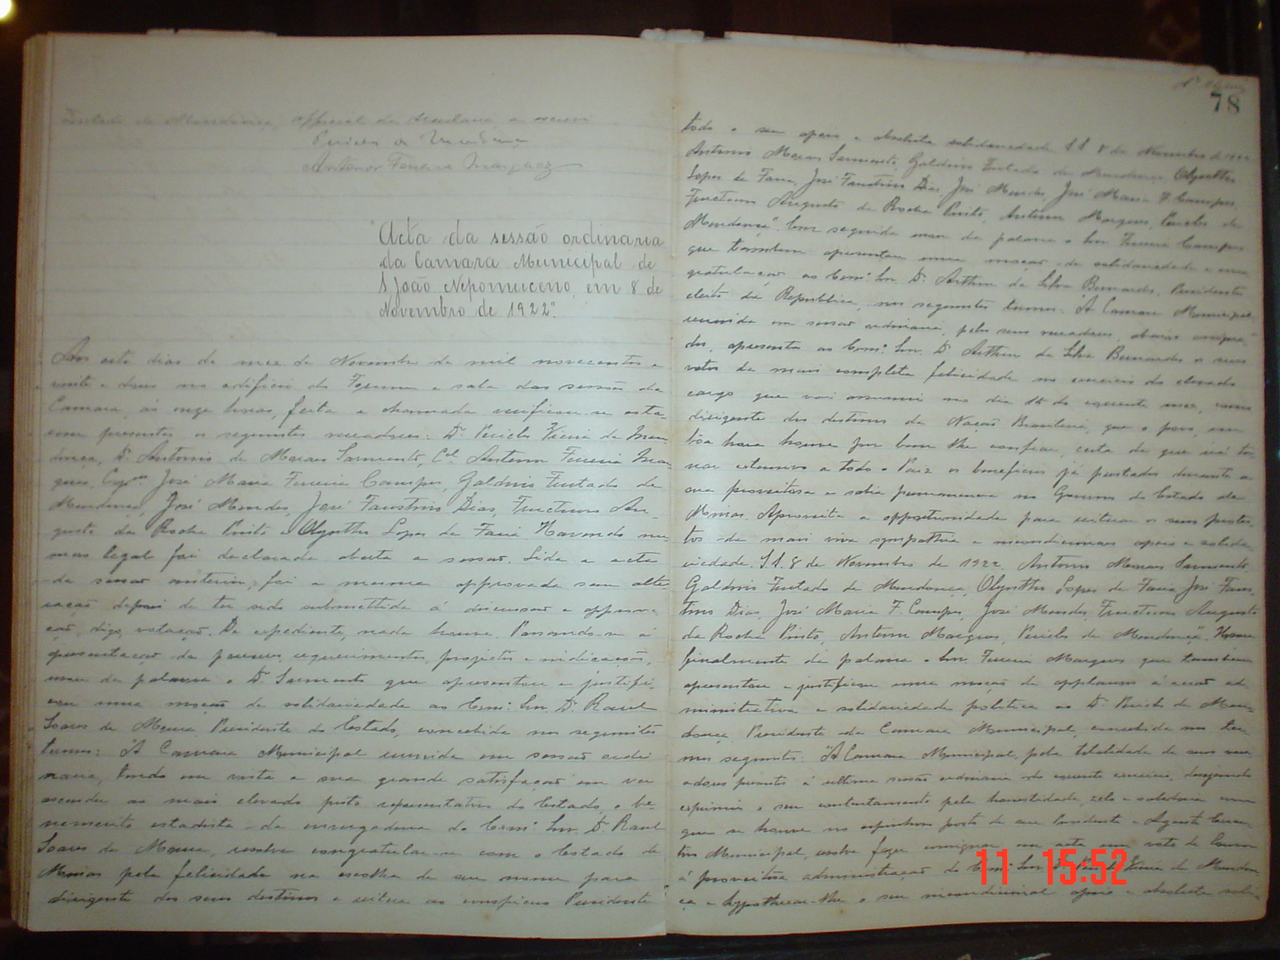 Furtado de Mendonça, official da secretaria a escrevi
Pericles de Mendonça
Antenor Ferreira Marques
"Acta da sessão ordinaria
da Camara Municipal de
S. João Nepomuceno, em 8 de
Novembro de 1922".
Aos oito dias do mez de Novembro de mil novecentos e
vinte e dous no edificio do Forum e sala das sessões da
Camara, ás onze horas, feita a chamada verificou-se esta-
rem presentes os seguintes vereadores: Dr. Pericles Vieira de Men-
donça, Dr. Antonio de Moraes Sarmento, Cel. Antenor Ferreira Mar-
ques, José Maria Ferreira Campos, Galdino Furtado de
Mendonça, José Mendes, José Faustino Dias, Fructuoso Au-
gusto da Rocha Pinto e Olyntho Lopes de Faria. Havendo nu-
mero legal foi declarada aberta a sessão. Lida a acta
da sessão anterior, foi a mesma approvada sem alte-
ração depois de ter sido submettida á discussão e approva-
ção, digo, votação. De expediente, nada houve. Passando-se á
apresentação de pareceres, requerimentos, projectos e indicações,
usou da palavra o Dr. Sarmento que apresentou e justifi-
cou uma moção de solidariedade ao Exmo. Snr. Dr. Raul
Soares de Moura, Presidente do Estado, concebida nos seguintes
termos: "A Camara Municipal reunida em sessão ordi-
naria, tendo em vista a sua grande satisfação em ver
ascender ao mais elevado posto representativo do Estado, o be-
nemerito estadista da envergadura do Exmo. Snr. Dr. Raul
Soares de Moura, resolve congratular-se com o Estado de
Minas pela felicidade na escolha de seu nome para
dirigente dos seus destinos e reitera ao conspicuo Presidente
78
todo o seu apoio e absoluta solidariedade. S.S. 8 de Novembro de 1922
Antonio Moraes Sarmento, Galdino Furtado de Mendonça, Olyntho
Lopes de Faria, José Faustino Dias, José Mendes, José Maria F. Campos,
Fructuoso Augusto da Rocha Pinto, Antenor Marques, Pericles de
Mendonça". Em seguida usou da palavra o Snr. Ferreira Campos
que tambem apresentou uma moção de solidariedade e con-
gratulação ao Exmo. Snr. Dr. Arthur da Silva Bernardes, Presidente
eleito da Republica, nos seguintes termos: "A Camara Municipal
reunida em sessão ordinaria, pelos seus vereadores, abaixo assigna-
dos, apresenta ao Exmo. Snr. Dr. Arthur da Silva Bernardes os seus
votos da mais completa felicidade no exercicio do elevado
cargo que vai assumir no dia 15 do corrente mez, como
dirigente dos destinos da Nação Brasileira, que o povo, em
bôa hora houve por bem lhe confiar, certa de que irá tor-
nar extensivo a todo o Paiz os beneficios já prestados durante a
sua proveitosa e sabia permanencia no Governo do Estado de
Minas. Aproveita a opportunidade para reiterar os seus protes-
tos da mais viva sympathia e incondicional apoio e solida-
riedade. S.S. 8 de Novembro de 1922. Antonio Moraes Sarmento,
Galdino Furtado de Mendonça, Olyntho Lopes de Faria, José Faus-
tino Dias, José Maria F. Campos, José Mendes, Fructuoso Augusto
da Rocha Pinto, Antenor Marques, Pericles de Mendonça". Usou
finalmente da palavra o Snr. Ferreira Marques que tambem
apresentou e justificou uma moção de applauso á acção ad-
ministrativa e solidariedade politica ao Dr. Pericles de Men-
donça, Presidente da Camara Municipal, concebida nos ter-
mos seguintes: "A Camara Municipal, pela totalidade de seus vere-
adores presente á ultima sessão ordinaria do corrente exercicio, desejando
exprimir o seu contentamento pela honestidade, zelo e sabedoria com
que se houve no espinhoso posto de seu Presidente e Agente Execu-
tivo Municipal, resolve fazer consignar em acta um voto de louvor
á proveitosa administração do Exmo. Snr. Dr. Pericles Vieira de Mendon-
ça e hypothecar-lhe o seu incondicional apoio e absoluta soli-
11 15:52